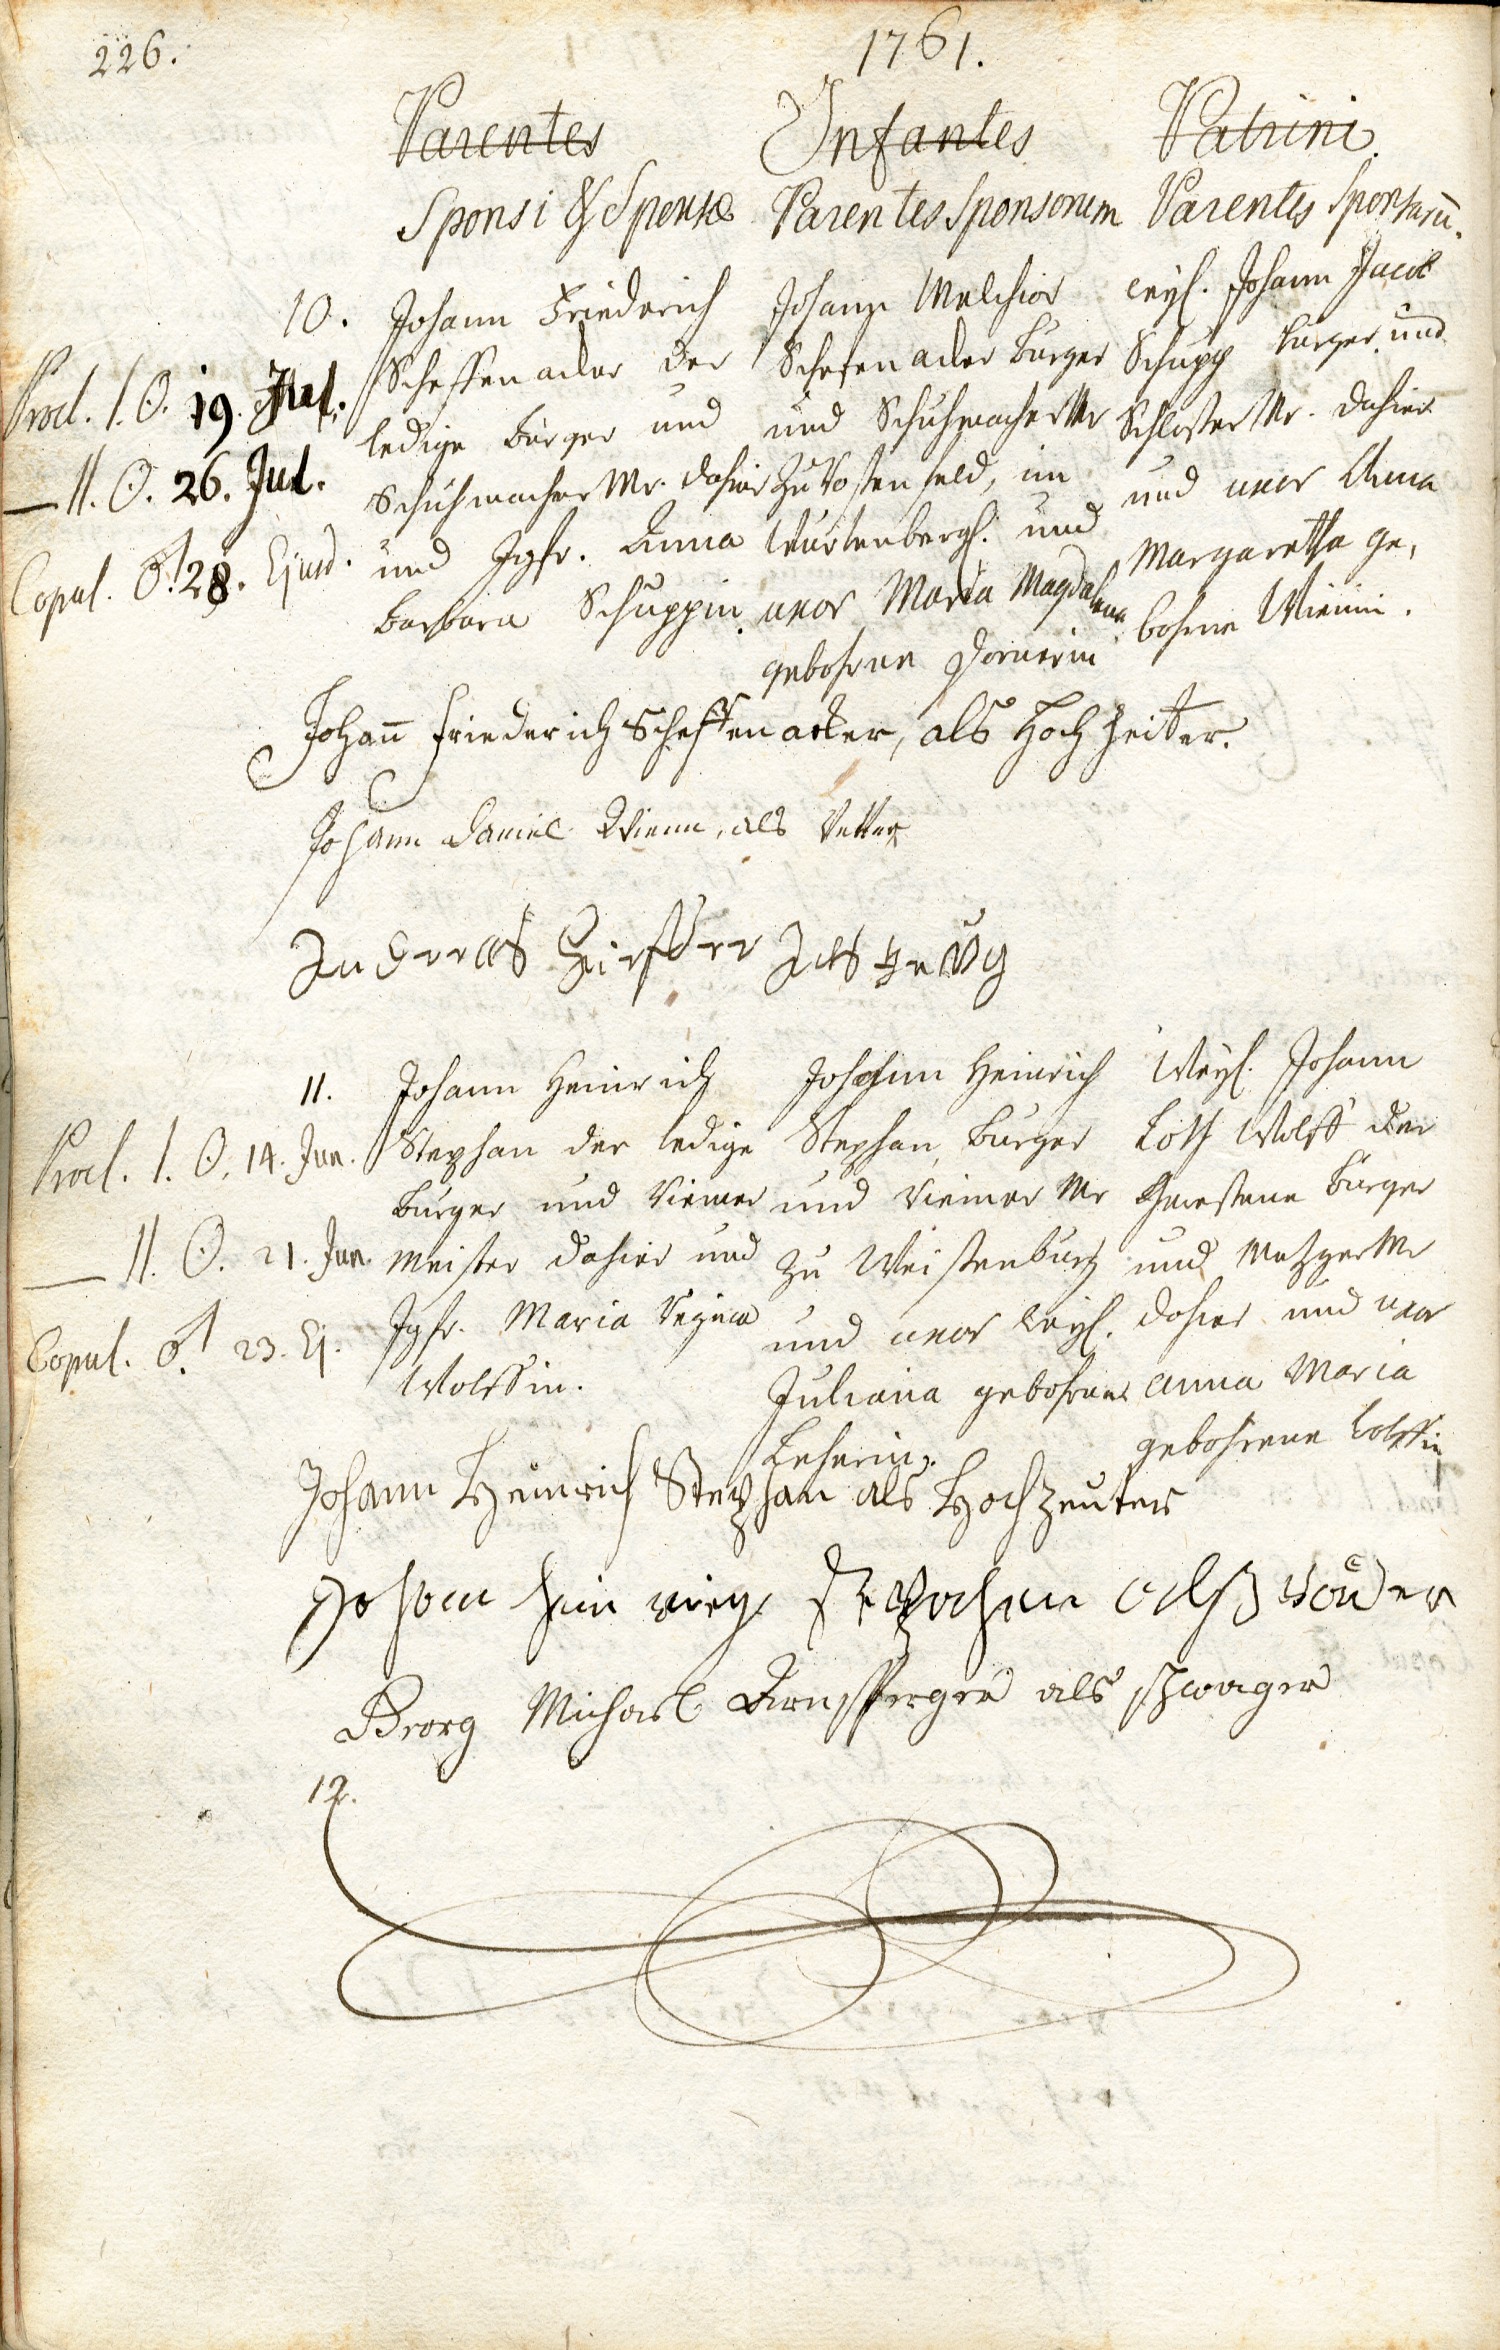 226.
1761.
Parentes Infantes Patrini
Sponsi & Sponsæ Parentes Sponsorum Parentes Sponsarū.
10.
Procl. I. ☉. 19. Jul.
— II. ☉. 26. Jul.
Copul. ♂ 28. Ejusd.
Johann Friederich
Scheffenacker der
ledige Burger und
Schuhmacher Mr. dahier
und Jgfr. Anna
Barbara Schuppin.
Johann Melchior
Schefenacker Burger
und Schuhmacher Mr
zu Vossenfeld, im
Würtenbergs. und
uxor Maria Magdalena
gebohrne Dornerin
weyl. Johann Jacob
Schupp burger und
Schlosser Mr. dahier
und uxor Anna
Margaretha ge,
bohrne Wienin.
Johañ Friederich Scheffenacker, als Hochzeiter.
Johann Daniel Wienn, als Vetter
Andreas als Zeug
11.
Procl. I. ☉. 14. Jun.
— II. ☉. 21. Jun.
Copul. ♂ 23. Ej.
Johann Heinrich
Stephan der ledige
Burger und Riemer
Meister dahier und
Jgfr. Maria Regina
Wolffin.
Johann Heinrich
Stephan, Burger
und Riemer Mr
zu Weissenburg
und uxor weyl.
Juliana gebohrne
Leherin.
Weyl. Johann
Loth Wolff der
Gewesene Burger
und Metzger Mr
dahier und uxor
Anna Maria
gebohrene Wolffin
Johann Heinrich Stephan als Hochzeuter
Johann Stephan alß
Georg Michael als schwager
12.